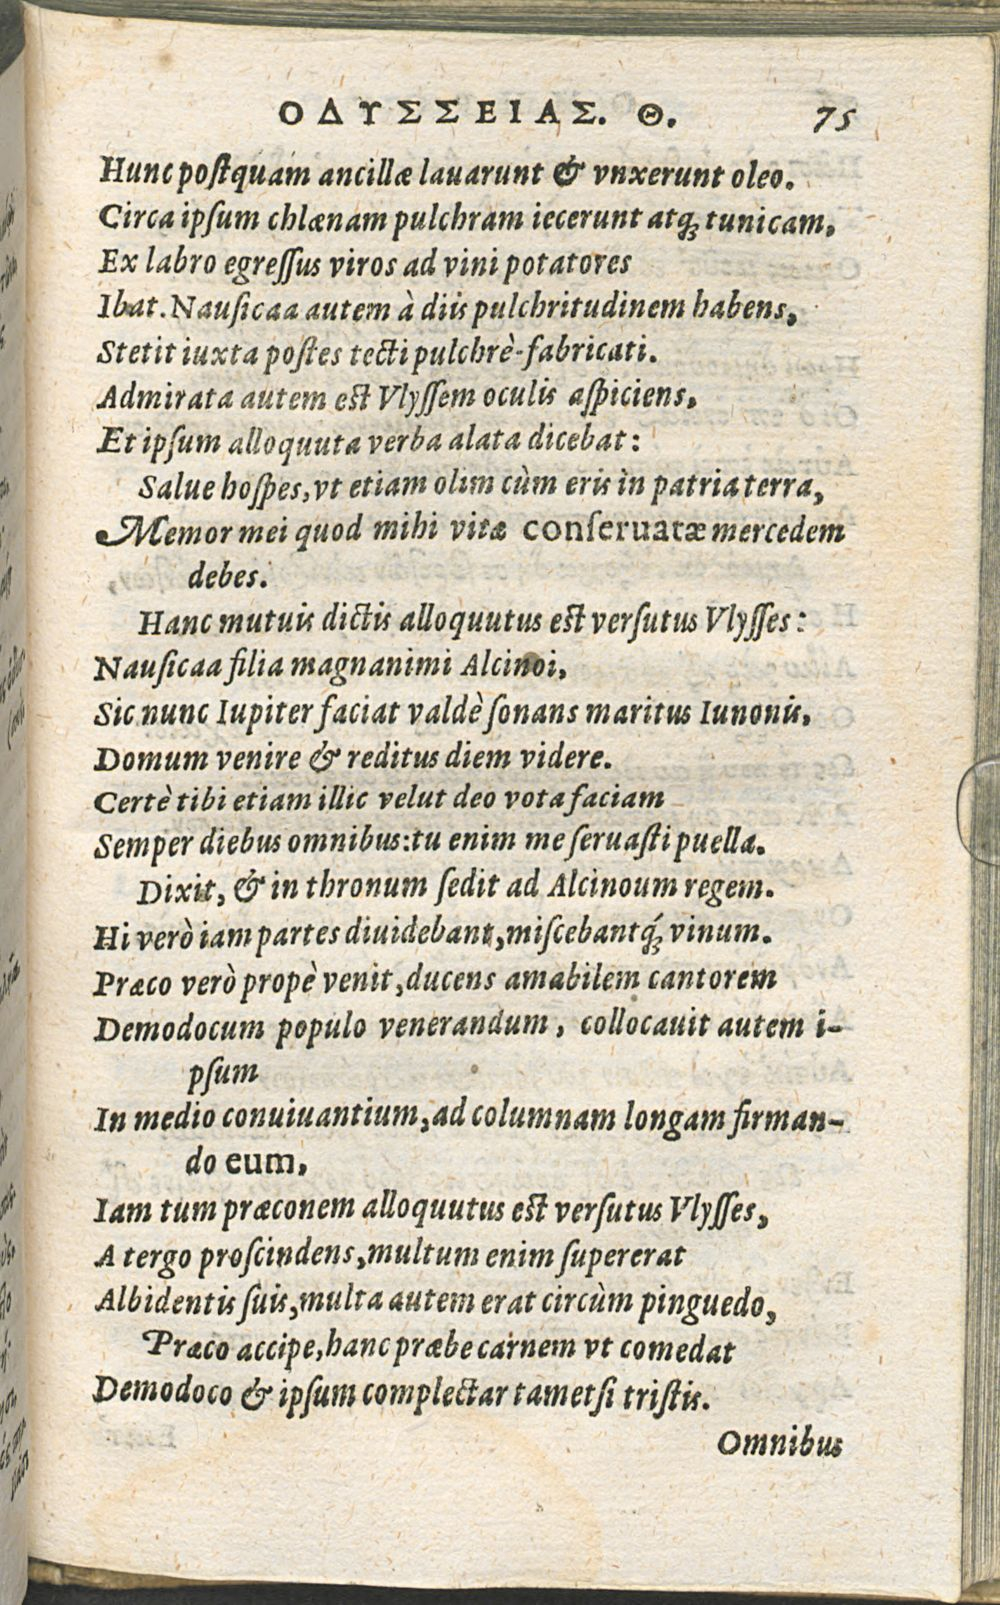 ΟΔΥΣΣΕΙΑΣ. Θ. 75
Hunc poſtquam ancillæ lauarunt & vnxerunt oleo.
Circa ipſum chlænam pulchram iecerunt atq; tunicam,
Ex labro egreſſus viros ad vini potatores
Ibat. Nauſicaa autem à diis pulchritudinem habens,
Stetit iuxta poſtes tecti pulchrè-fabricati.
Admirata autem eſt Vlyſſem oculis aſpiciens,
Et ipſum alloquuta verba alata dicebat:
Salue hoſpes, vt etiam olim cùm eris in patria terra,
Memor mei quod mihi vitæ conſeruatæ mercedem
debes.
Hanc mutuis dictis alloquutus eſt verſutus Vlyſſes:
Nauſicaa filia magnanimi Alcinoi,
Sic nunc Iupiter faciat valdè ſonans maritus Iunonis,
Domum venire & reditus diem videre.
Certè tibi etiam illic velut deo vota faciam
Semper diebus omnibus: tu enim me ſeruaſti puella.
Dixit, & in thronum ſedit ad Alcinoum regem.
Hi verò iam partes diuidebant, miſcebantq́; vinum.
Præco verò propè venit, ducens amabilem cantorem
Demodocum populo venerandum, collocauit autem i-
pſum
In medio conuiuantium, ad columnam longam firman-
do eum,
Iam tum præconem alloquutus eſt verſutus Vlyſſes,
A tergo proſcindens, multum enim ſupererat
Albidentis ſuis, multa autem erat circùm pinguedo,
Præco accipe, hanc præbe carnem vt comedat
Demodoco & ipſum complectar tametſi triſtis.
Omnibus